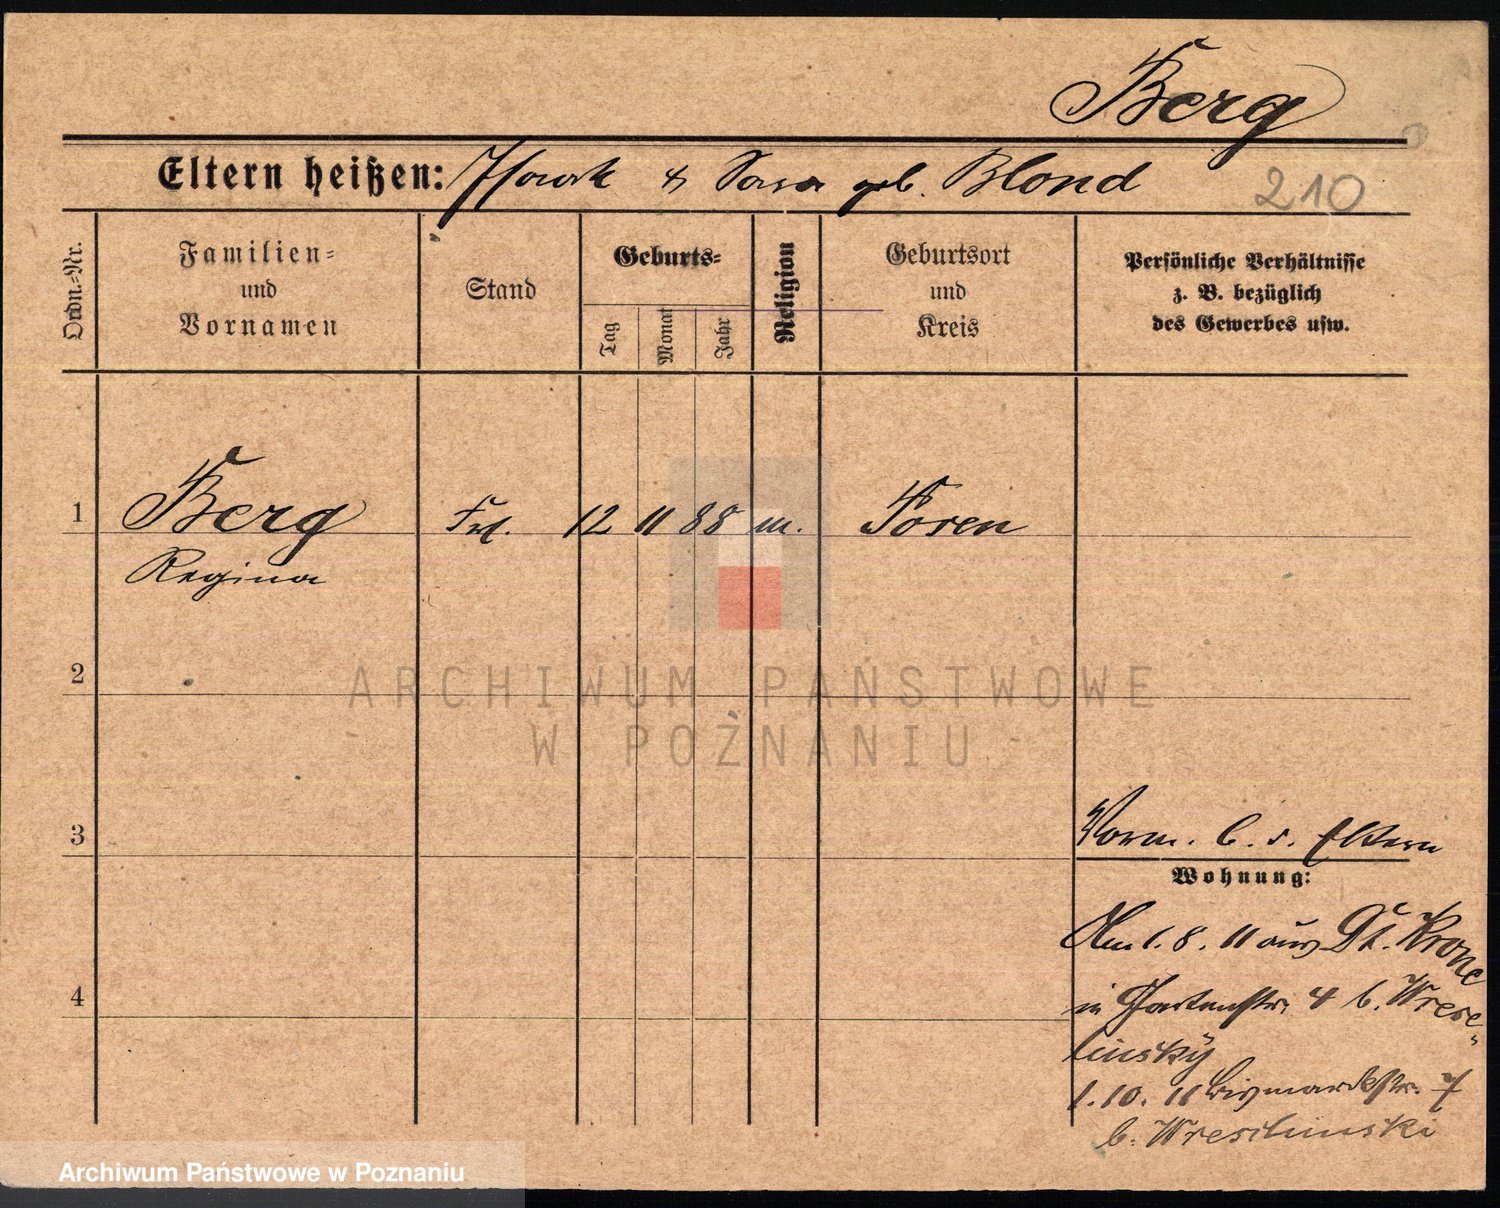 Berg
Eltern heißen: Isaak & Sara geb. Blond
210
Ordn.=Nr.
Familien=
und
Vornamen
Stand
Geburts=
Tag
Monat
Jahr
Religion
Geburtsort
und
Kreis
Persönliche Verhältnisse
z. B. bezüglich
des Gewerbes usw.
1 Berg Frl. 12 11 88 m. Posen
Regina
2
3
4
Vorm. b. d. Eltern
Wohnung:
Am 1. 8. 11 aus Dt. Krone
in Gartenstr. 4 b. Wresc=
linsky
1. 10. 11 Bismarckstr. 7
b. Wreschinski
ARCHIWUM PAŃSTWOWE
W POZNANIU
Archiwum Państwowe w Poznaniu